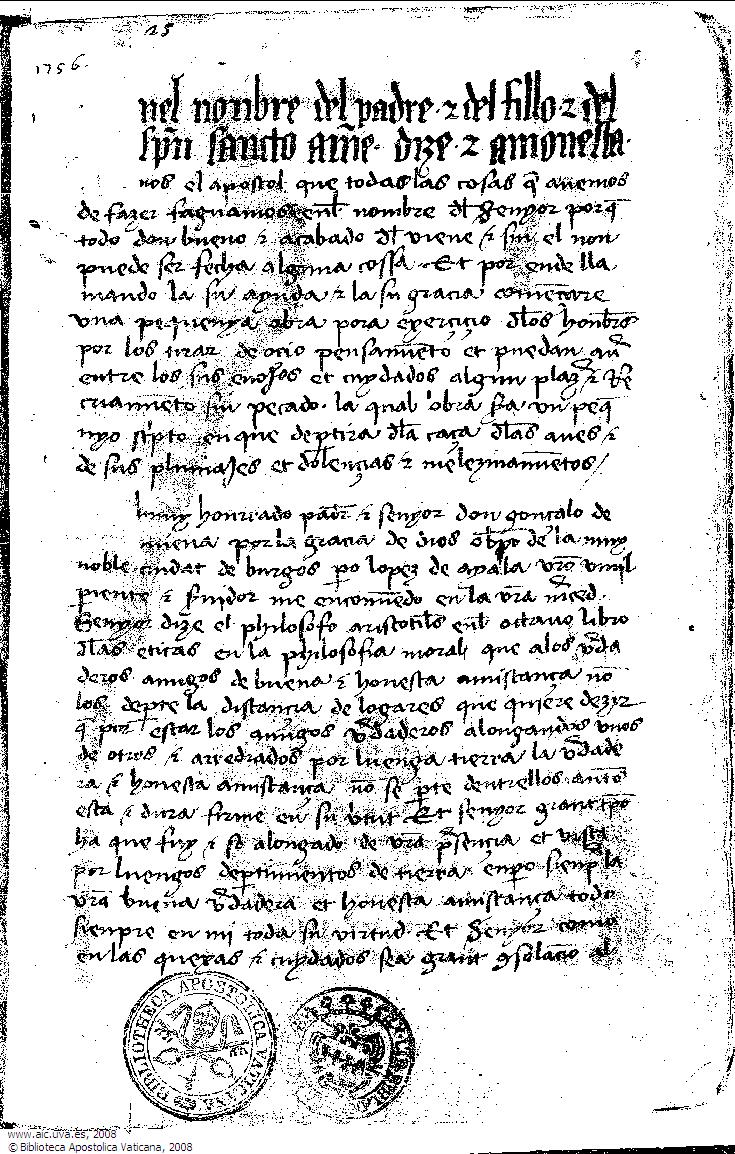 25
1756.
nel nonbre del padre · τ del fillo τ del
sp̃u sancto amē · dize · τ amonesta ·
nos el apostol que todas las cosas q̄ auemos
de fazer fagamos enl̄ nombre dl̄ Senyor porq̄
todo don bueno τ acabado dl̄ viene τ sin el non
puede ser fecha alguna cossa · Et por ende lla
mando la su ayuda τ la su gracia començare
vna pequenya obra pora exercicio dlos honbrēs
por los tirar de ocio pensamiēto et puedan
entre los sus enojos et cuydados algun plaz̄ τ Re
criamiēto sin pecado · la qual obra vn peq̄
nyo sc̃pto en que deptira dla caça dlas aues τ
de sus plumajes et dolençias τ melezinamiētos /
muy honrrado padr̄ τ senyor don gonçalo de
mena por la gracia de dios obpo de la muy
noble ciudat de burgos po lopez de ayala vr̄o vmil
piente τ me encomiēdo en la vr̄a m̄ced ·
Senyor dize el philosofo aristotiles enl̄ octauo libro
dlas eticas en la philosofia moral que alos v̄da
deros amigos de buena τ honesta amistança nō
los depte la distancia de logares que quiere dezyr
q̄ por estar los amigos v̄daderos alongandos vnos
de otros τ arredrados por luenga tierra la v̄dade
ra τ honesta amistança nō se pte dentrellos antēs
esta τ dura firme en su v̄tut Et senyor grant tp̄o
ha que fuy τ so alongado de vr̄a p̄sencia et vista
por luengos deptimientos de tierra · enpo sienp̄ la
vr̄a buena v̄dadera et honesta amistança todo
sienpre en mi toda su virtud · Et Senyor como
en las quexas τ cuydados sea grant 9solacio al
BIBLIOTHECA APOSTOLICA VATICANA
www.aic.uva.es, 2008
© Biblioteca Apostolica Vaticana, 2008